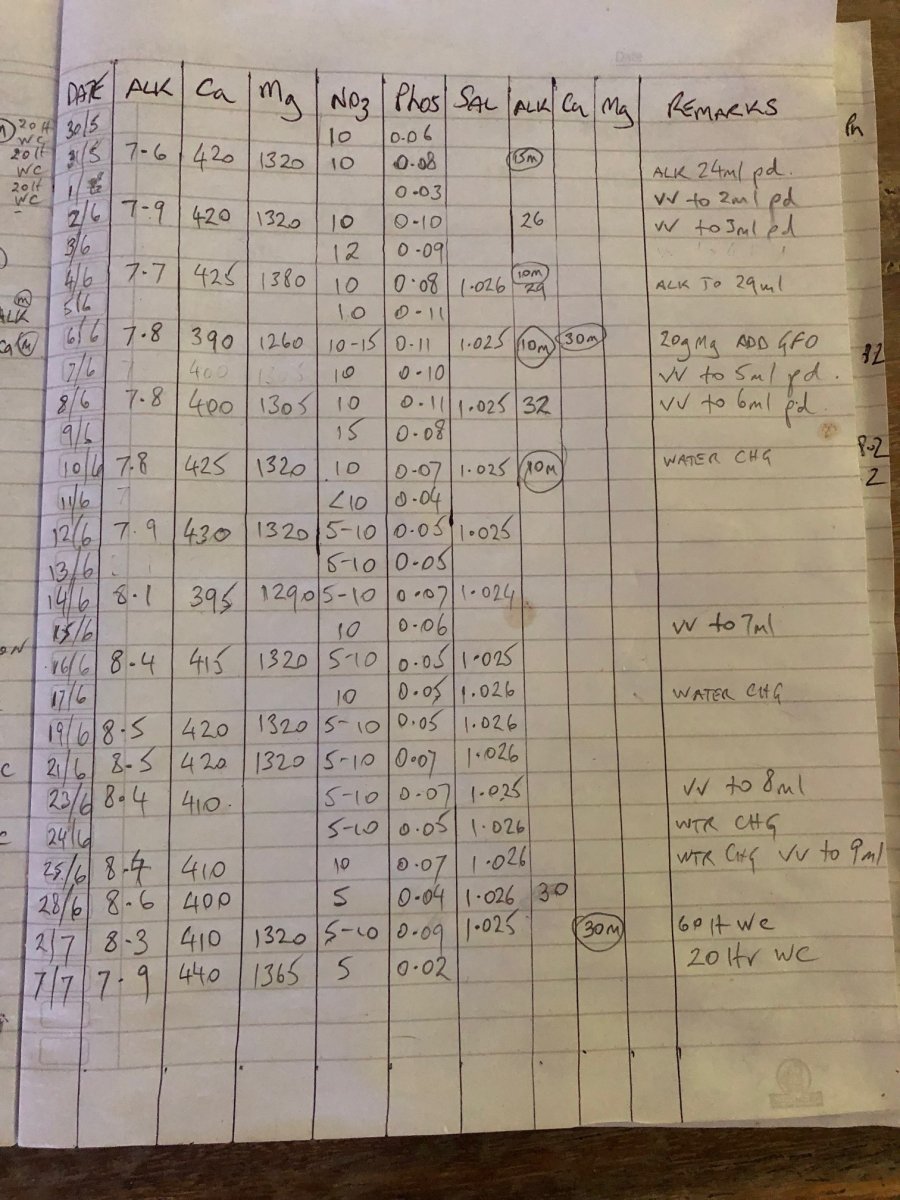 DATE ALK Ca Mg NO3 Phos SAL ALK Ca Mg REMARKS
30/5 10 0.06
31/5 7-6 420 1320 10 0.08 15m ALK 24ml pd.
1/6 0.03 VV to 2ml pd
2/6 7-9 420 1320 10 0-10 26 VV to 3ml pd
3/6 12 0-09
4/6 7.7 425 1380 10 0.08 1.026 10m 29 ALK TO 29ml
5/6 10 0-11
6/6 7.8 390 1260 10-15 0.11 1.025 10m 30m 20g Mg ADD GFO
7/6 10 0-10 VV to 5ml pd.
8/6 7.8 400 1305 10 0.11 1.025 32 VV to 6ml pd
9/6 15 0.08
10/6 7.8 425 1320 10 0.07 1.025 10m WATER CHG
11/6 <10 0.04
12/6 7.9 430 1320 5-10 0.05 1.025
13/6 5-10 0.05
14/6 8.1 395 1290 5-10 0.07 1.024
15/6 10 0.06 VV to 7ml
16/6 8-4 415 1320 5-10 0.05 1.025
17/6 10 0.05 1.026 WATER CHG
19/6 8-5 420 1320 5-10 0.05 1.026
21/6 8-5 420 1320 5-10 0.07 1.026
23/6 8.4 410. 5-10 0.07 1.025 VV to 8ml
24/6 5-10 0.05 1.026 WTR CHG
25/6 410 10 0.07 1.026 WTR CHG VV to 9ml
28/6 8-6 400 5 0.04 1.026 30
2/7 8-3 410 1320 5-10 0.09 1.025 30m 60lt WC
7/7 7-9 440 1365 5 0.02 20ltr WC
20lt
WC
20lt
WC
20lt
WC
ALK
Ca m
Ph
8-2